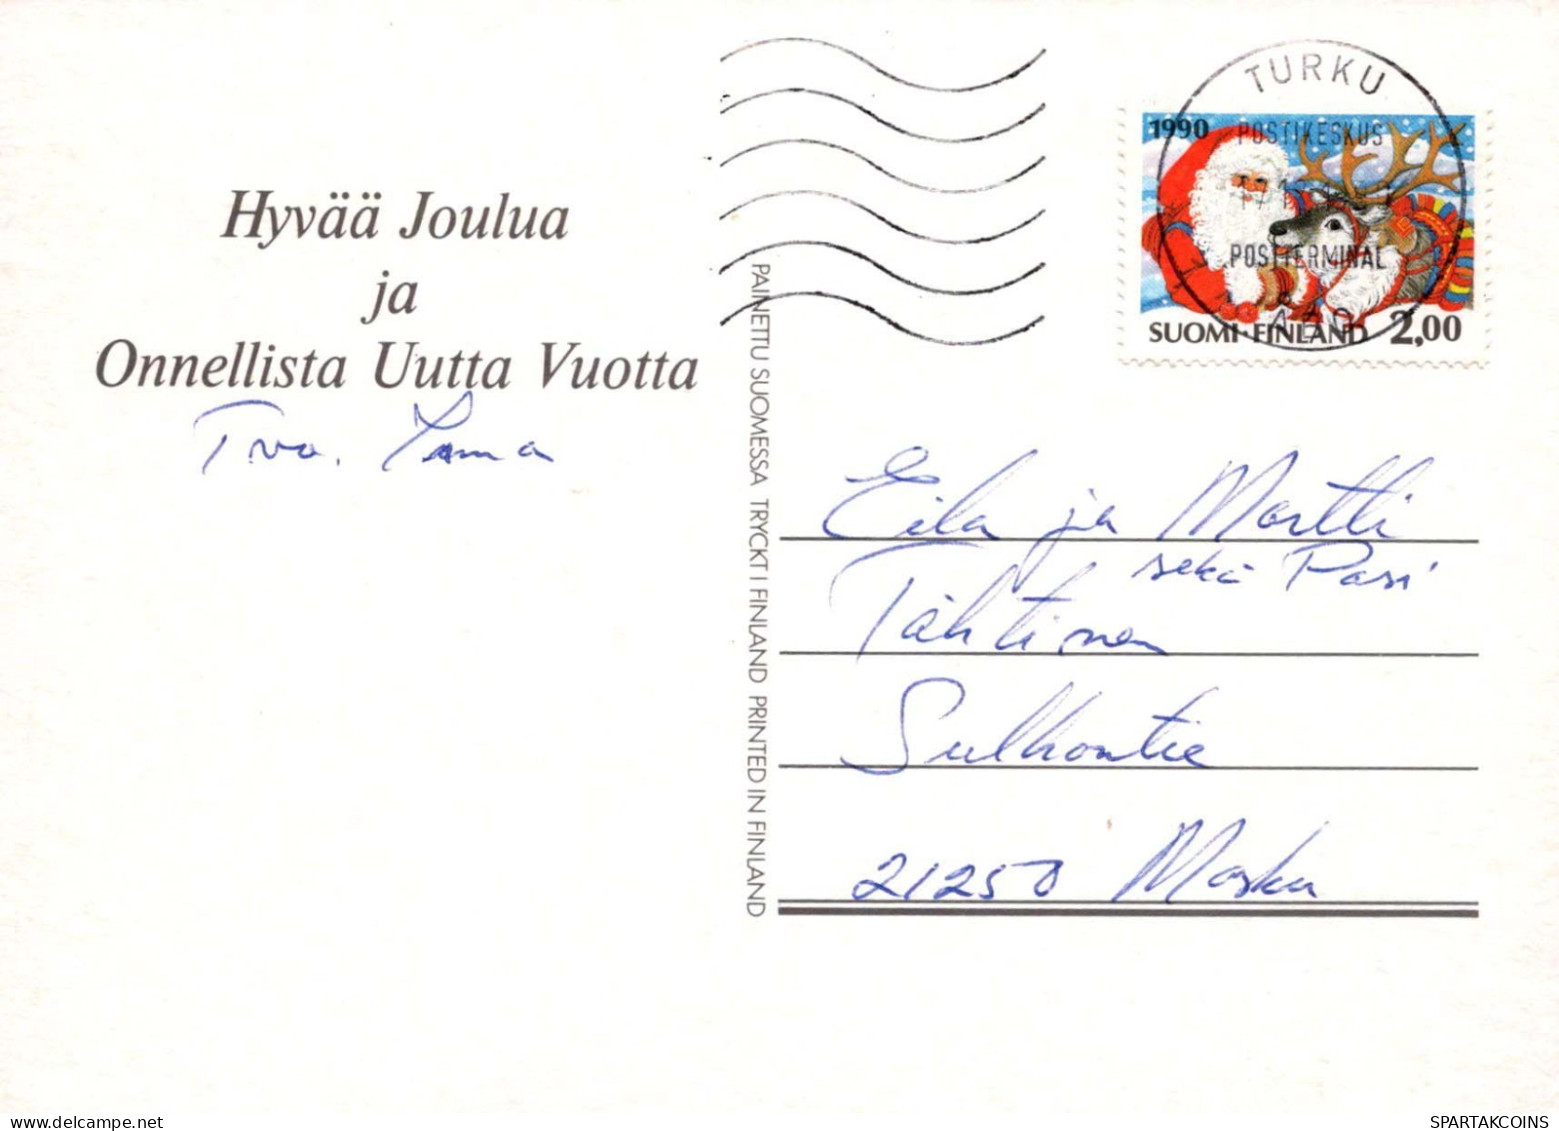 Hyvää Joulua
ja
Onnellista Uutta Vuotta
Tvo.
PAINETTU SUOMESSA TRYCKT I FINLAND PRINTED IN FINLAND
TURKU
POSTIKESKUS
POSTTERMINAL
ÅBO
1990
SUOMI-FINLAND 2,00
Eila ja Martti
sekä Pasi
Tähtinen
Sulhontie
21250 Masku
SPARTAKCOINS